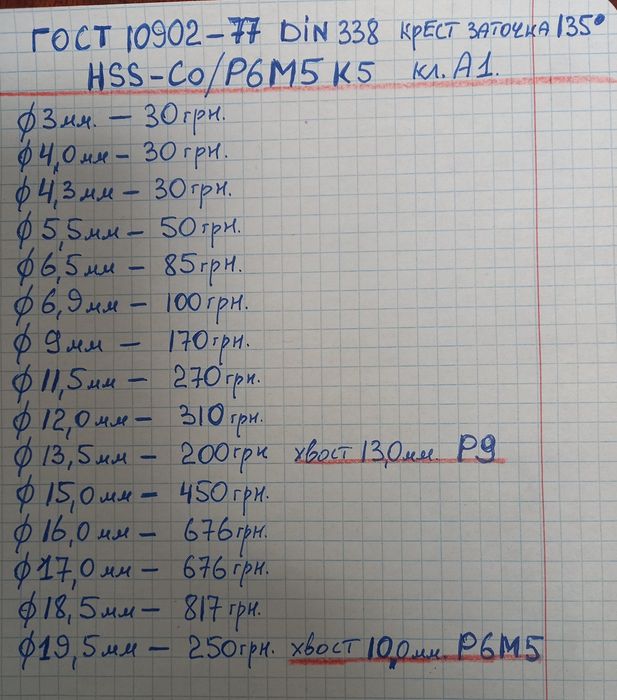 ГОСТ 10902-77 DIN 338 КРЕСТ ЗАТОЧКА 135°
HSS-CO/Р6М5 К5 кл. А1.
ϕ 3мм. – 30грн.
ϕ 4,0мм – 30грн.
ϕ 4,3мм – 30грн.
ϕ 5,5мм – 50грн.
ϕ 6,5мм – 85грн.
ϕ 6,9мм – 100грн.
ϕ 9мм – 170грн.
ϕ 11,5мм – 270грн.
ϕ 12,0мм – 310грн.
ϕ 13,5мм – 200грн хвост 13,0мм. Р9
ϕ 15,0мм – 450грн.
ϕ 16,0мм – 676грн.
ϕ 17,0мм – 676грн.
ϕ 18,5мм – 817грн.
ϕ 19,5мм – 250грн. хвост 10,0мм. Р6М5